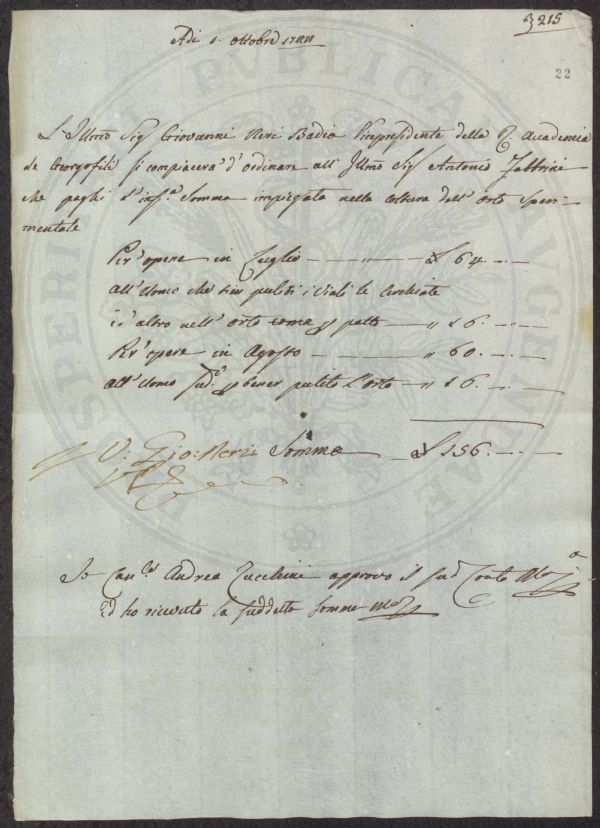 3215
22
Adi 1. ottobre 1788
L'Illmo Sig Giovanni Neri Badia Vicepresidente della R. Accademia
de Georgofili si compiacerà d'ordinare all' Illmo Sig Antonio Fabbrini
che paghi l'infa. Somma impiegata nella coltura dell' orto Speri-
mentale
Per opere in Luglio — " — £ 64. —
all' Uomo che tien puliti i viali le Cerchiate
ed altro nell' orto come p patto — " 16. —
Per opere in Agosto — " 60. —
all' Uomo sud.o p tener pulito l'orto — " 16. —
V. Gio: Neri Somma £ 156. —
Io Can.co Andrea Zucchini approvo il sud Conto
Ed ho ricevuto la suddetta Somma
PROSPERITATI PUBLICAE AUGENDAE